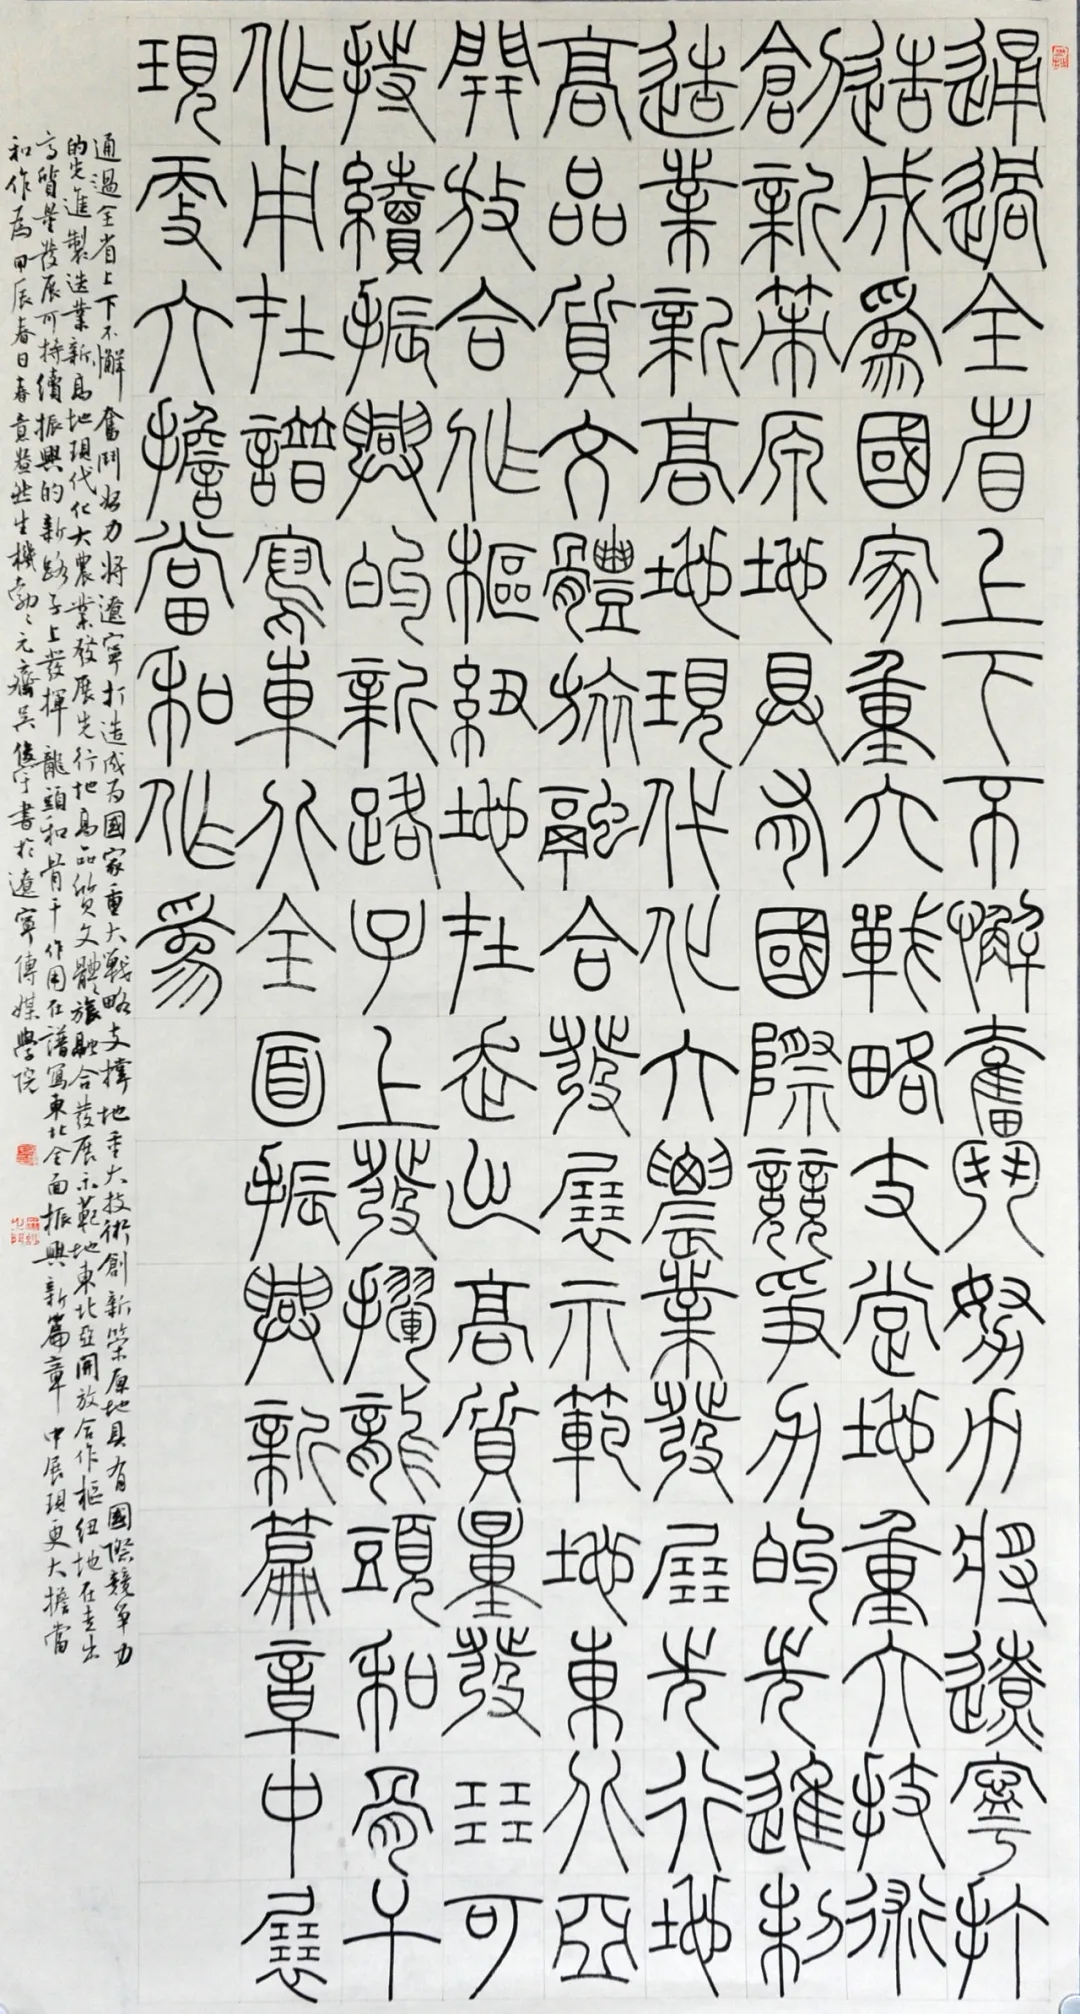 通過全省上下不懈奮鬥努力將遼寧打
造成為國家重大戰略支撐地重大技術
創新策原地具有國際競爭力的先進制
造業新高地現代化大農業發展先行地
高品質文體旅融合發展示範地東北亞
開放合作樞紐地在走出高質量發展可
持續振興的新路子上發揮龍頭和骨干
作用在譜寫東北全面振興新篇章中展
現更大擔當和作為
通過全省上下不懈奮鬥努力將遼寧打造成为國家重大戰略支撐地重大技術創新策原地具有國際競爭力
的先進製造業新高地現代化大農業發展先行地高品質文體旅融合發展示範地東北亞開放合作樞紐地在走出
高質量發展可持續振興的新路子上發揮龍頭和骨干作用在譜寫東北全面振興新篇章中展現更大擔當
和作為甲辰春日春意盎然生機勃々元齋吳書於遼寧傳媒學院